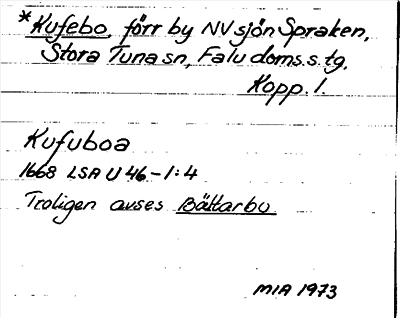 *Kufebo, förr by NV sjön Spraken,
Stora Tuna sn, Falu doms.s. tg,
Kopp. l.
Kufuboa
1668 LSA U 46-1:4
Troligen avses Bättarbo
MIA 1973